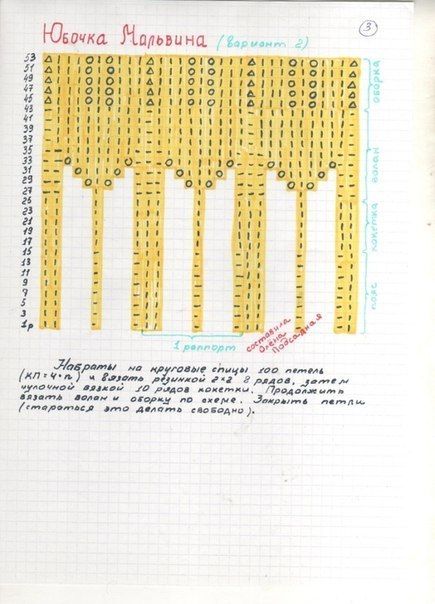 3
Юбочка Мальвина (вариант 2)
53
51
49
47
45
43
41
39
37
35
33
31
29
27
25
23
21
19
17
15
13
11
9
7
5
3
1р
оборка
волан
кокетка
пояс
1 раппорт
составила
Олена
Подсадная
Набрать на круговые спицы 100 петель
(КП=4·n) и вязать резинкой 2*2 8 рядов, затем
чулочной вязкой 10 рядов кокетки. Продолжить
вязать волан и оборку по схеме. Закрыть петли
(стараться это делать свободно).